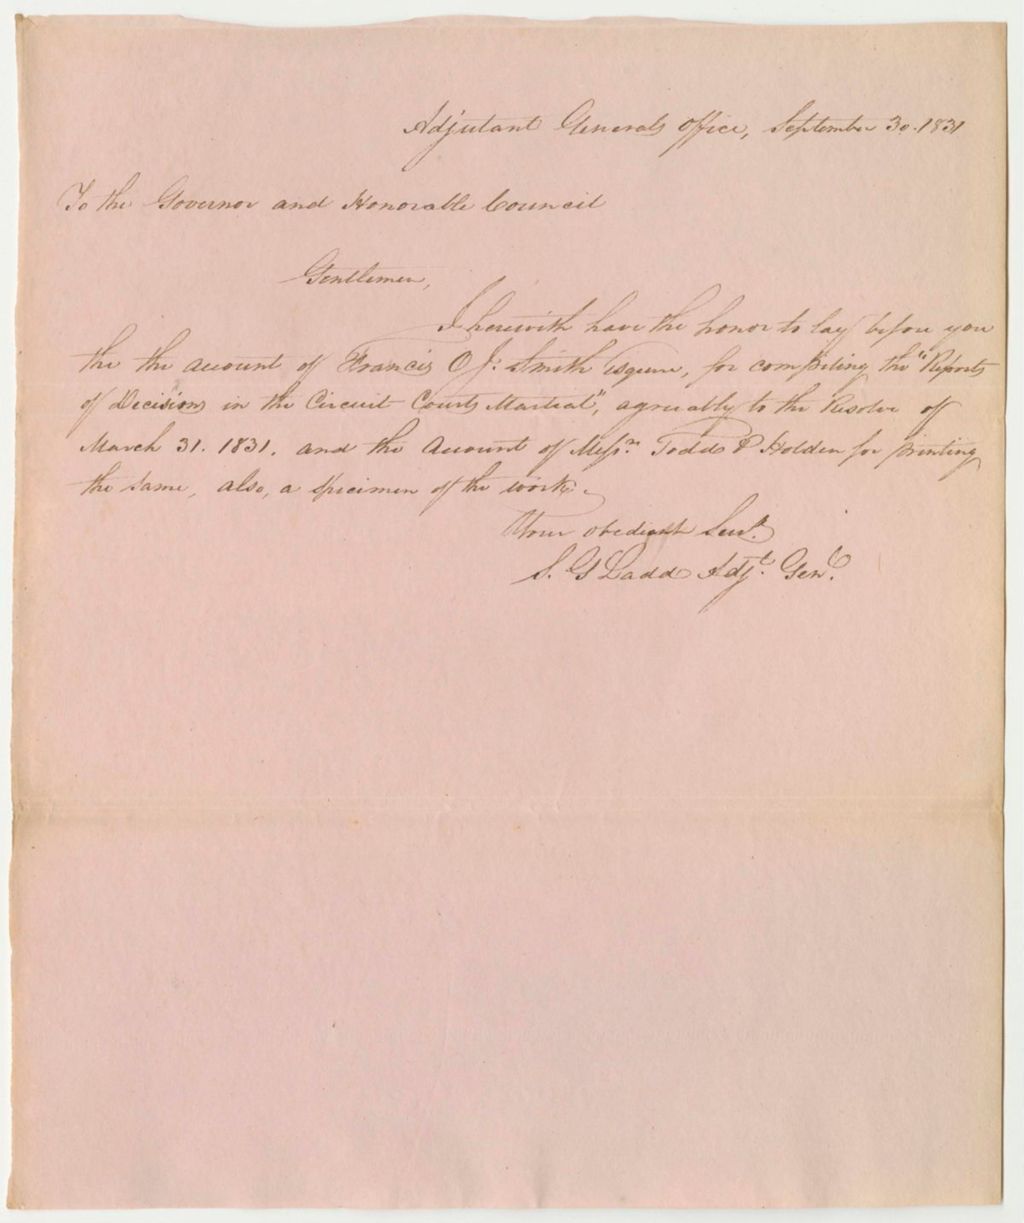 Adjutant Generals Office, September 30. 1831
To the Governor and Honorable Council
Gentlemen,
I herewith have the honor to lay before you
the the account of Francis O J. Smith Esquire, for compiling the "Reports
of Decisions in the Circuit Courts Martial", agreeably to the Resolve of
March 31. 1831. and the account of Messrs. Todd & Holden for printing
the same, also, a specimen of the work.
Your obedient Servt.
S. G Ladd Adjt. Genl.